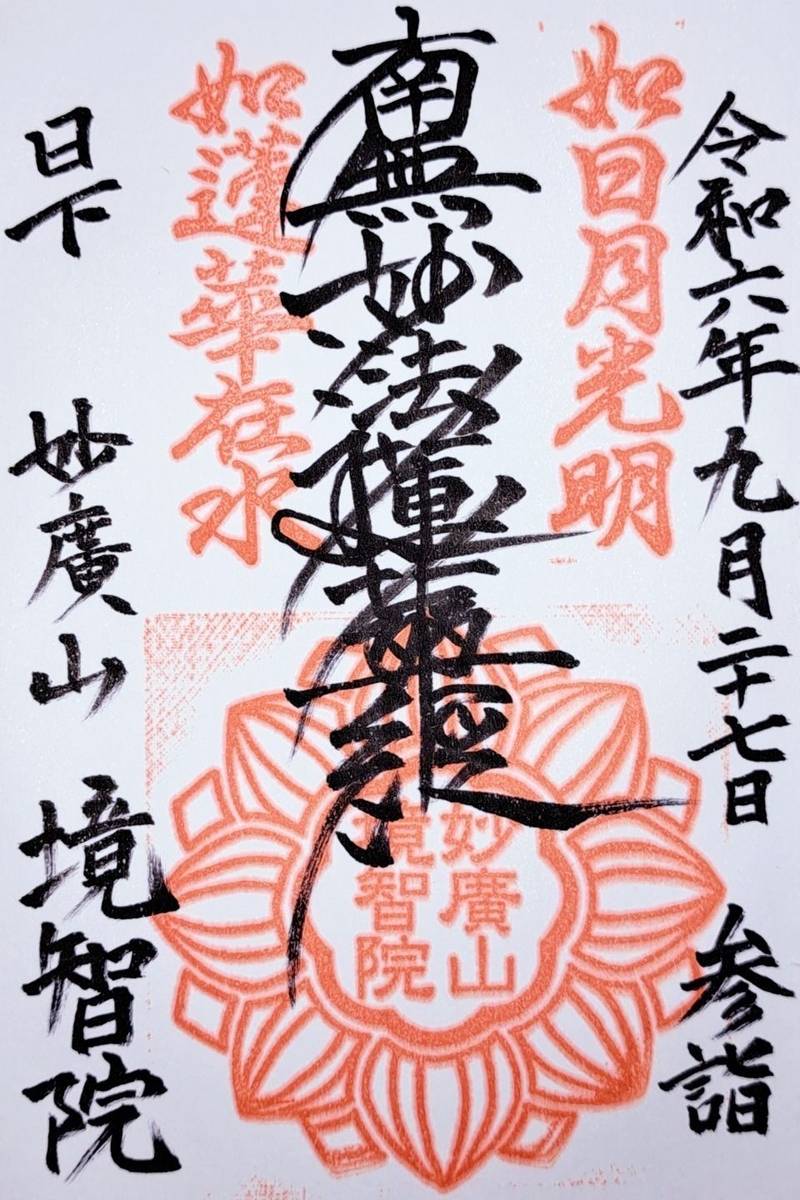 令和六年九月二十七日 参詣
如日月光明
南無妙法蓮華經
如蓮華在水
日下 妙廣山 境智院
妙廣山
境智院